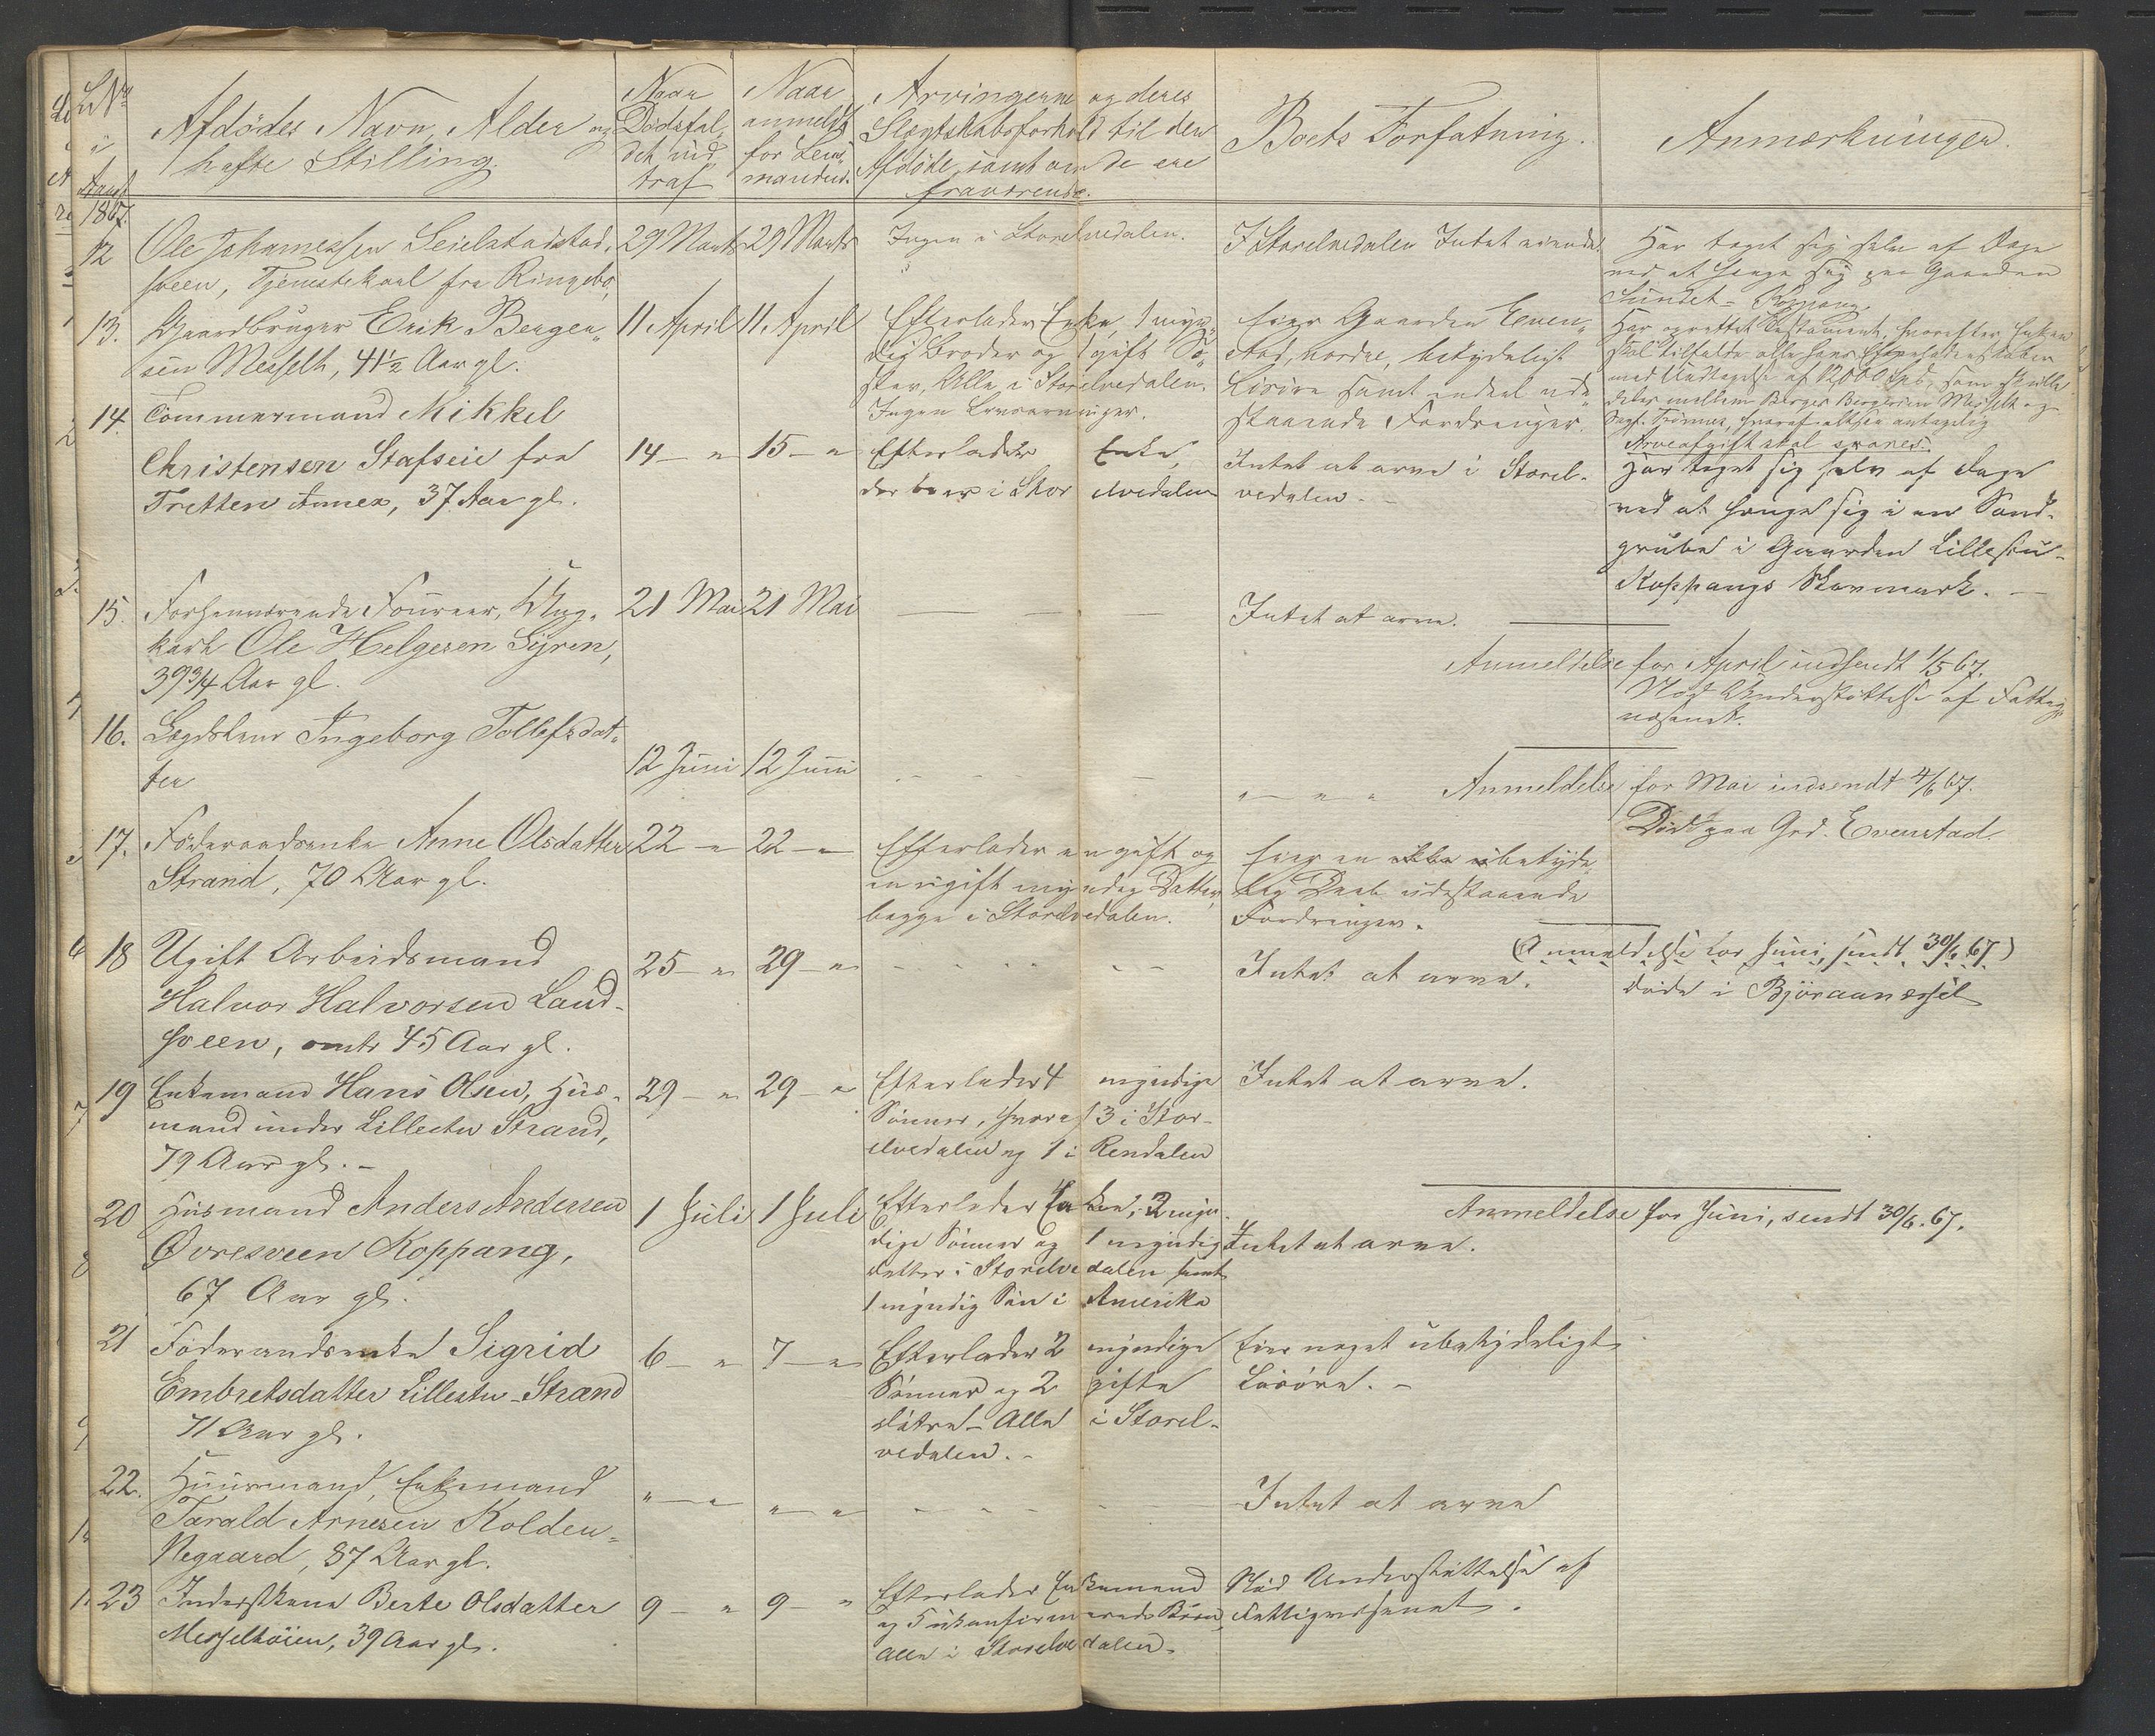 L No
Afdödes Navn, Alder og
hafte Stilling.
Naar
Dödsfal-
det ind
traf
Naar
anmeldt
for Lens
manden.
Arvingerne og deres
Slægtskabsforhold til den
Afdöde, samt om de ere
fraværende.
Boets Forfatning.
Anmærkninger.
1867.
12
Ole Johannessen Seielstadstad-
sveen, Tjenestekarl fra Ringebo,
29 Marts
29 Marts
Ingen i Storelvedalen.
I Storelvedalen Intet eiende.
Har taget sig selv af Dage
ved at hænge sig paa Gaarden
Sundet-Koppang.
13.
Gaardbruger Erik Bergen-
sen Messelt, 41½ Aar gl.
11 April
11 April
Efterlader Enke, 1 myn-
dig Broder og 1 gift Sö-
ster, Alle i Storelvedalen.
Ingen Livsarvinger.
Eier Gaarden Even-
stad, nordre, betydeligt
Lösöre samt endeel ude-
staaende Fordringer.
Har oprettet Testament, hvorefter Enken
skal tilfalde alle hans Efterladenskaber
med Undtagelse af 12000 Spd, som skulle
deles mellem Berger Bergersen Messelt og
hvoraf altsaa antagelig
Arveafgift skal svares.
14.
Tömmermand Mikkel
Christensen Stafseie fra
Tretten Annex, 37 Aar gl.
14 — "
15 — "
Efterlader Enke,
der boer i Storelvedalen
Intet at arve i Storel-
vedalen. -
Har taget sig selv af Dage
ved at hænge sig i en Sand-
grube i Gaarden Lillestu-
Koppangs Havnemark. —
15.
Forhenværende Foureer, Ung-
karl Ole Helgesen Gyren,
39¾ Aar gl.
21 Mai
21 Mai
— — —
Intet at arve.
Anmeldelse for April indsendt 1/5 67.
Nöd Understöttelse af Fattig-
væsenet.
16.
Lægdslem Ingeborg Tollefsdat-
ter
12 Juni
12 Juni
- - - -
" — " "
Anmeldelse for Mai indsendt 4/6 67.
Död paa Grd. Evenstad
17.
Föderaadsenke Anne Olsdatter
Strand, 70 Aar gl.
22 — "
22 — "
Efterlader en gift og
en ugift myndig Datter,
begge i Storelvedalen.
Eier en ikke ubetyde-
lig Deel udestaaende
Fordringer.
(Anmeldelse for Juni, sendt 30/6 67)
18
Ugift Arbeidsmand
Halvor Halvorsen Land-
sveen, omtr 45 Aar gl.
25 — "
29 — "
- - - - -
Intet at arve.
döde i Björaanessæt
19
Enkemand Hans Olsen, Hus-
mand under Lillestu Strand,
79 Aar gl. -
29 — "
29 — "
Efterlader 4 myndige
Sönner, hvoraf 3 i Stor-
elvedalen og 1 i Rendalen
Intet at arve.
Anmeldelse for Juni, sendt 30/6. 67.
20
Husmand Anders Andersen
Øvresveen Koppang,
67 Aar gl.
1 Juli
1 Juli
Efterlader Enken, 2 myn-
dige Sönner og 1 myndig
datter i Storelvedalen samt
1 myndig Sön i Amerika
Intet at arve.
21
Föderaadsenke Sigrid
Embretsdatter Lillestu-Strand
71 Aar gl.
6 — "
7 — "
Efterlader 2 myndige
Sönner og 2 gifte
dötre - Alle i Storel-
vedalen. -
Eier noget ubetydeligt
Lösöre. -
22.
Huusmand, Enkemand
Tarald Arnesen Kolden-
Negaard, 87 Aar gl.
" — "
" — "
- - - - -
Intet at arve
23
Inderstkone Berte Olsdatter
Messelthöien, 39 Aar gl.
9 — "
9 — "
Efterlader Enkemand
og 5 ukonfirmerede Börn,
alle i Storelvedalen.
Nöd Understöttelse af
Fattigvæsenet.